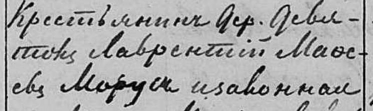 Крестьянинъ дер. Девя-
токъ Лаврентій Маѳе-
евъ Морусъ и законная